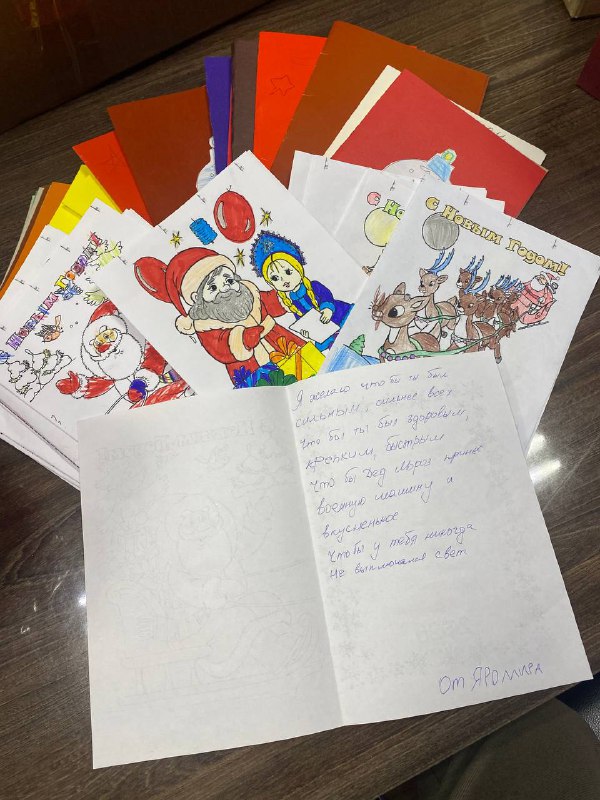 С Новым Годом!!
Новым Годом!
С Но
Я желаю что бы ты был
сильным, сильнее всех
что бы ты был здоровым,
крепким, быстрым
что бы Дед Мороз принёс
военную машину и
вкусненькое
Чтобы у тебя никогда
не выключался свет
От ЯРОМИРА